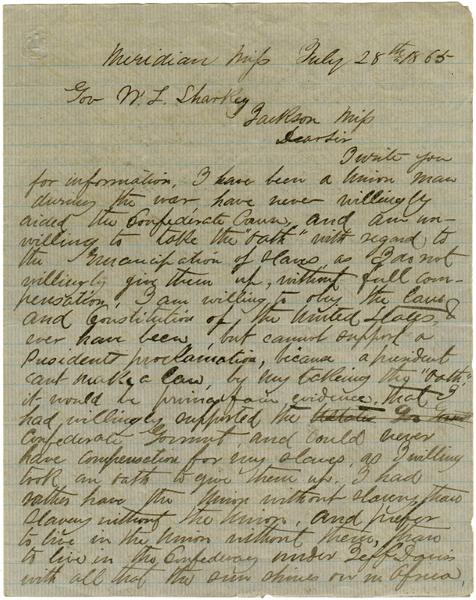 Meridian Miss July 28th 1865
Gov W. L. Sharkey
Jackson Miss
Dear Sir
I write you
for information, I have been a Union man
during the war, have never willingly
aided the Confederate Cause, and am un-
willing to take the "oath" with regard to
the Emancipation of slaves, as I do not
willingly give them up, without full com-
pensation, I am willing to obey the laws
and Constitution of the United States, &
ever have been, but cannot support a
Presidents proclamation, because a president
cant make a law, by my taking the "oath"
it would be prima facia evidence, that I
had, willingly supported the
Confederate Goverment, and could never
have compensation for my slaves, as I willing
took an oath to give them up, I had
rather have the Union without slavery, than
slavery without the Union, and prefer
to live in the Union without them, than
to live in the Confederacy under Jeff Davis
with all that the sun shines on in Africa,